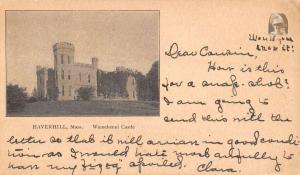 Would you
know it?
Dear Cousin,
How is this
for a snap-shot?
I am going to
send this with the
HAVERHILL, Mass. Winnekenni Castle
letter so that it will arrive in good condi
tion as I would hate awfully to
have my "" spoiled.
Clara.